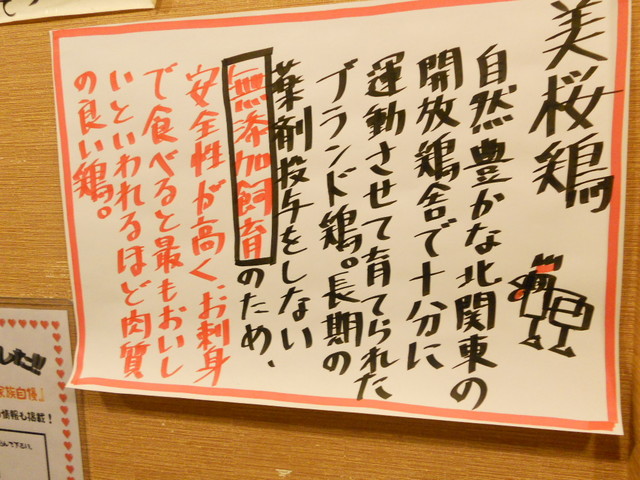 美桜鶏
自然豊かな北関東の
開放鶏舎で十分に
運動させて育てられた
ブランド鶏。長期の
薬剤投与をしない
無添加飼育のため、
安全性が高く、お刺身
で食べると最もおいし
いといわれるほど肉質
の良い鶏。
した!!
家族自慢』
情報も搭載!